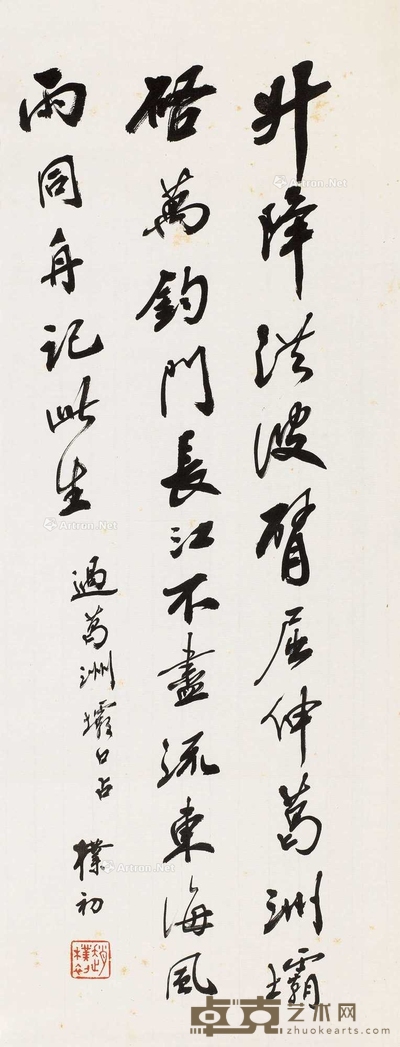 升降洪波臂屈伸葛洲壩
啓萬鈞門長江不盡流東海風
雨同舟記此生
過葛洲壩口占 樸初
趙樸初
Artron.Net
卓克艺术网
zhuokearts.com